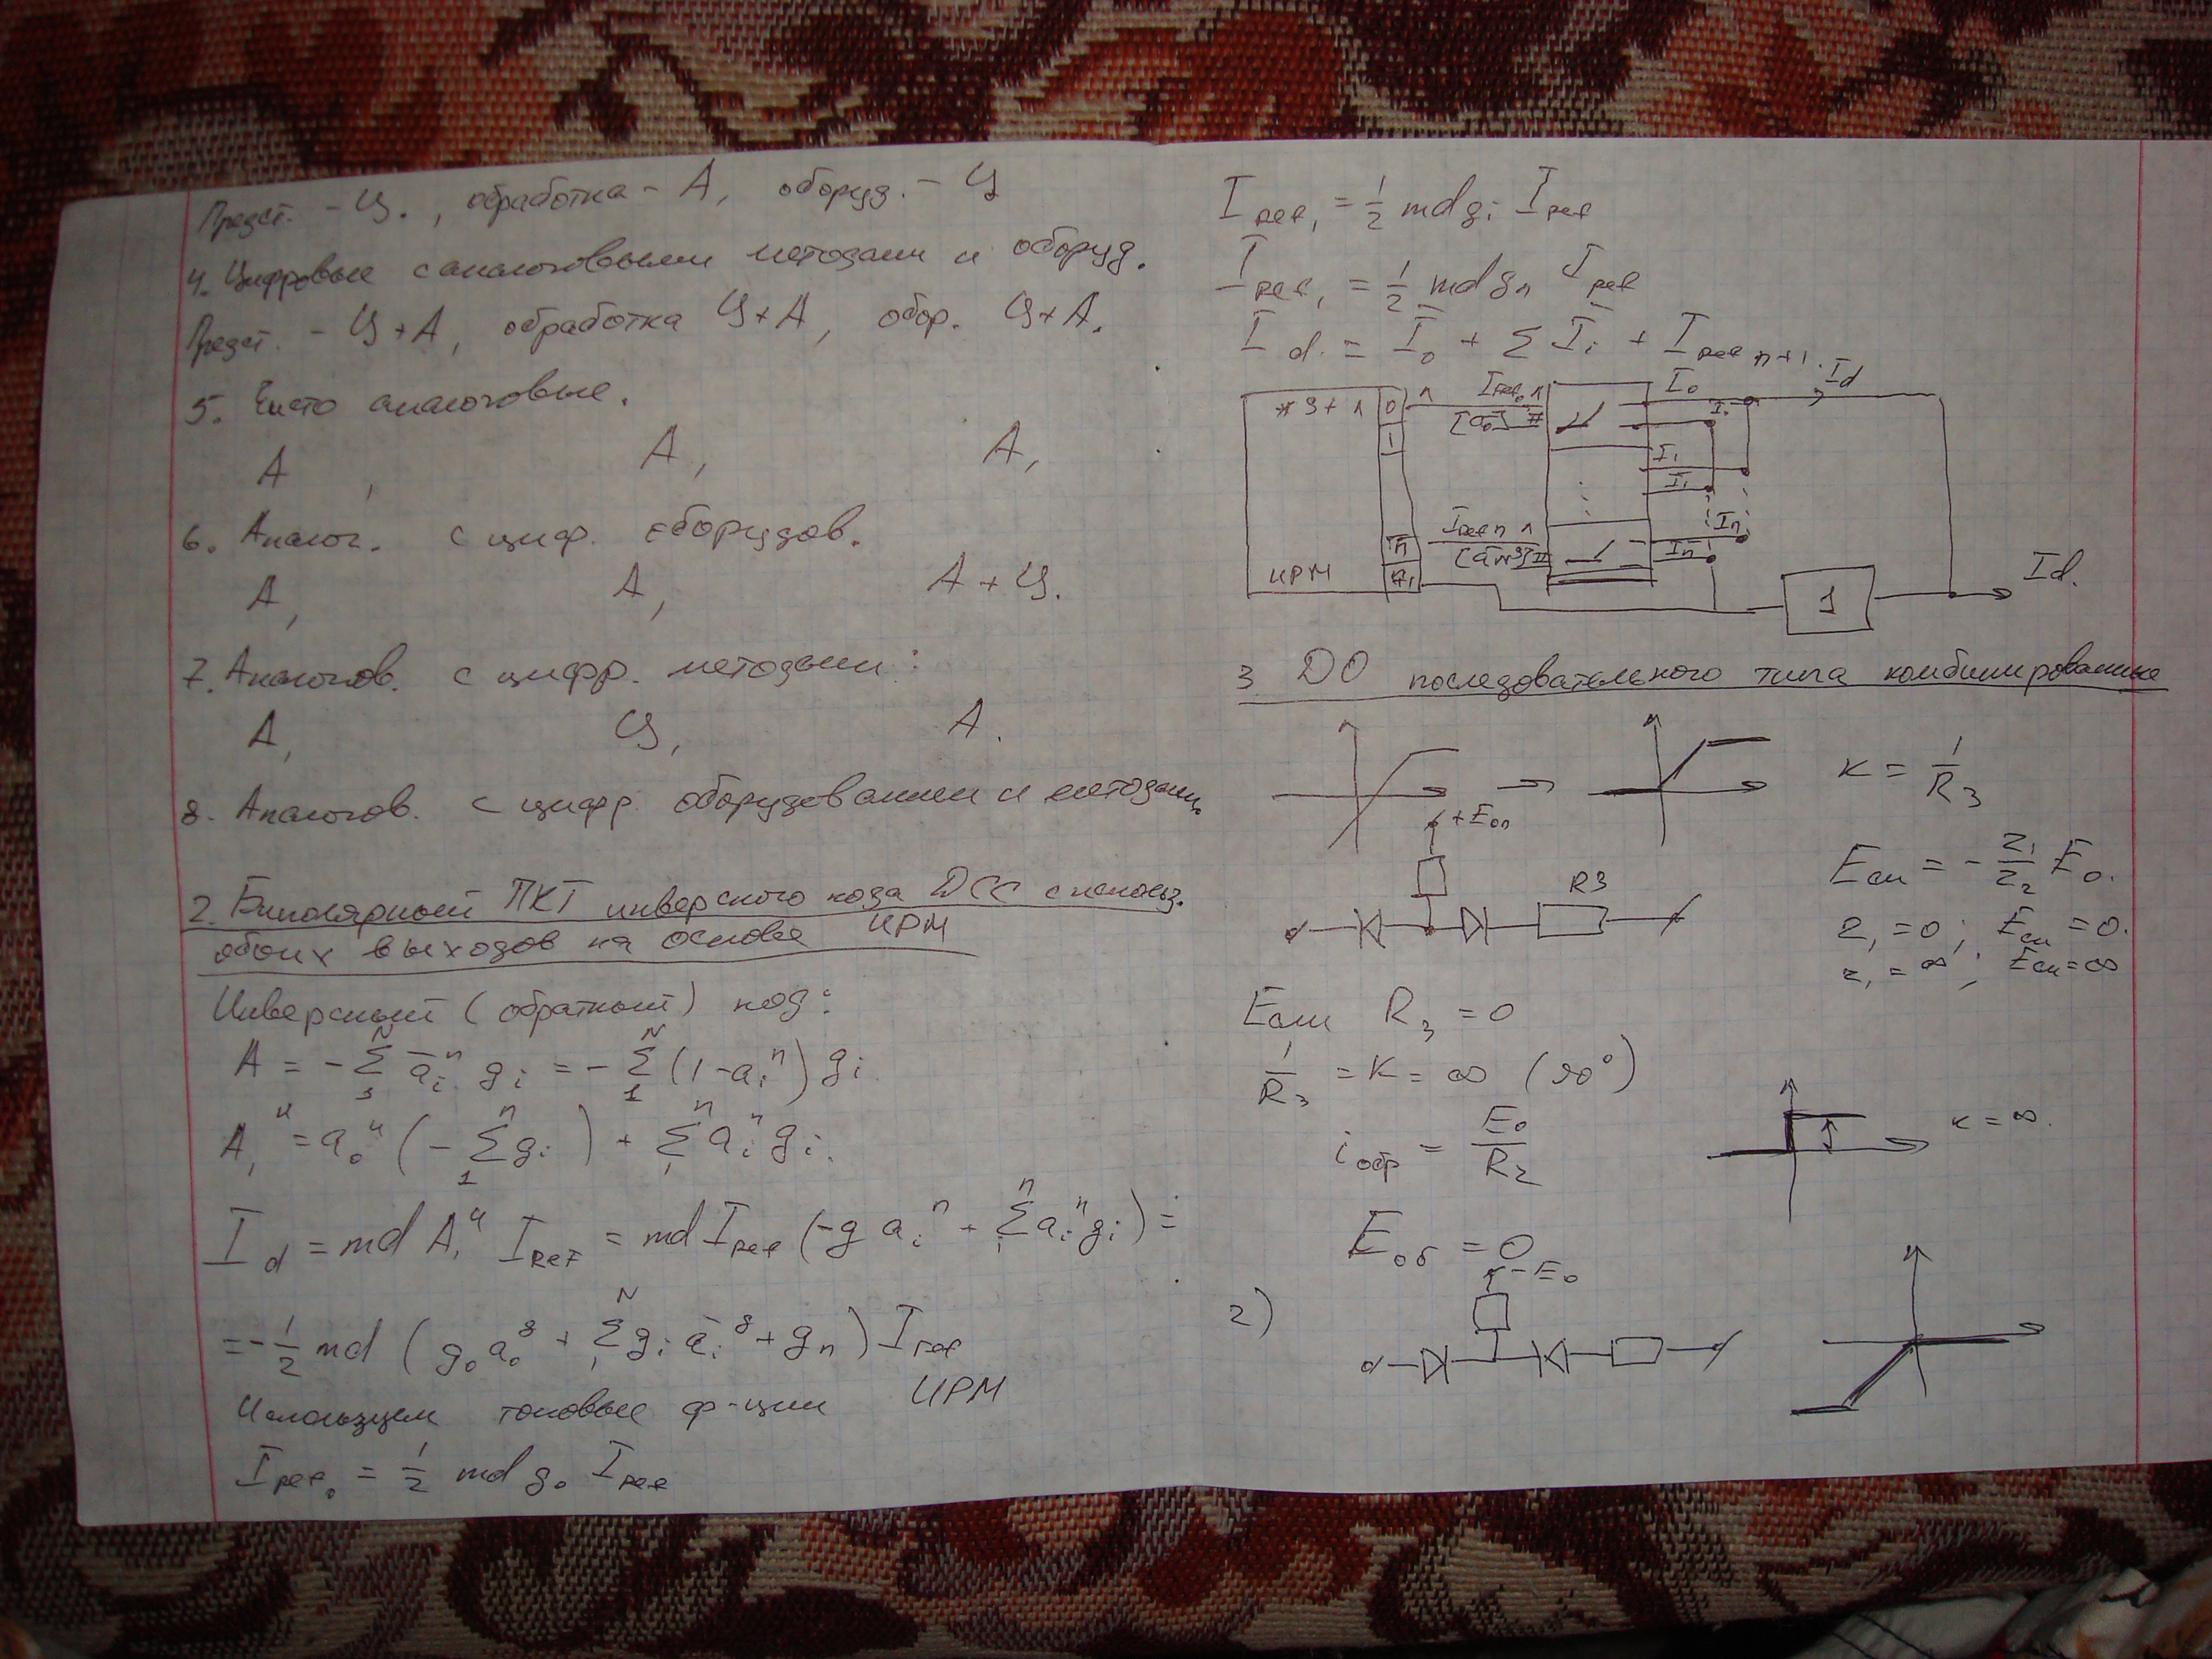 Предст. - Ц. , обработка - А, оборуд. - Ц
4. Цифровые с аналоговыми методами и оборуд.
Предст. - Ц + А, обработка Ц + А, обор. Ц + А.
5. Чисто аналоговые.
А , А, А,
6. Аналог. с циф. оборудов.
А, А, А + Ц.
7. Аналогов. с цифр. методами:
А, Ц, А.
8. Аналогов. с цифр. оборудованием и методами
2. Биполярный ПКТ инверсного кода ДСС с использ.
обоих выходов на основе ИРМ
Инверсный (обратный) код:
A = - Σ āᵢⁿ gᵢ = - Σ (1-aᵢⁿ) gᵢ
A₁ᶦ = a₀ᶦ (- Σ gᵢ) + Σ aᵢⁿ gᵢ.
I d = md A₁ᶦ I Ref = md I Ref (-g aᵢⁿ + Σ aᵢⁿ gᵢ) =
= - 1/2 md (g₀ a₀⁸ + Σ gᵢ āᵢ⁸ + gn) I ref
Используем токовые ф-ции ИРМ
I ref₀ = 1/2 md g₀ I ref
I ref₁ = 1/2 md gᵢ I ref
I ref₁ = 1/2 md gn I ref
I d. = I₀ + Σ Iᵢ + I ref n+1.
I₀ Id
0 1
I₁
I₁
In
In
ИРМ
1
Id.
3 ДО последовательного типа комбинированные
K = 1/R3
+ Eоп
R3
Eсм = - r₁/r₂ E₀.
r₁ = 0; Eсм = 0.
r₁ = ∞; Eсм = ∞
Если R3 = 0
1/R3 = K = ∞ (90°)
i огр = E₀/R2
K = ∞.
E об = 0
- E₀
2)